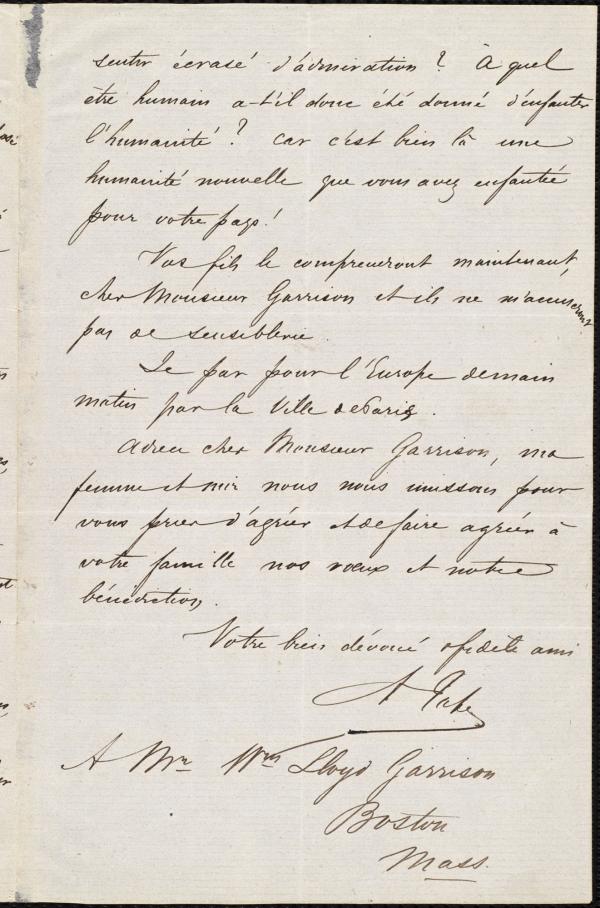 sentir écrasé d'admiration? À quel
être humain a-t'il donc été donné d'enfanter
l'humanité? car c'est bien là une
humanité nouvelle que vous avez enfantée
pour votre pays!
Vos fils le comprendront maintenant,
cher Monsieur Garrison et ils ne m'accuseront
pas de sensiblerie.
Je par pour l'Europe demain
matin par la Ville de Paris.
Adieu cher Monsieur Garrison, ma
femme et moi nous nous unissons pour
vous prier d'agréer et de faire agréer à
votre famille nos vœux et notre
bénédiction.
Votre bien dévoué & fidèle ami
A
A Mr Wm Lloyd Garrison
Boston
Mass.